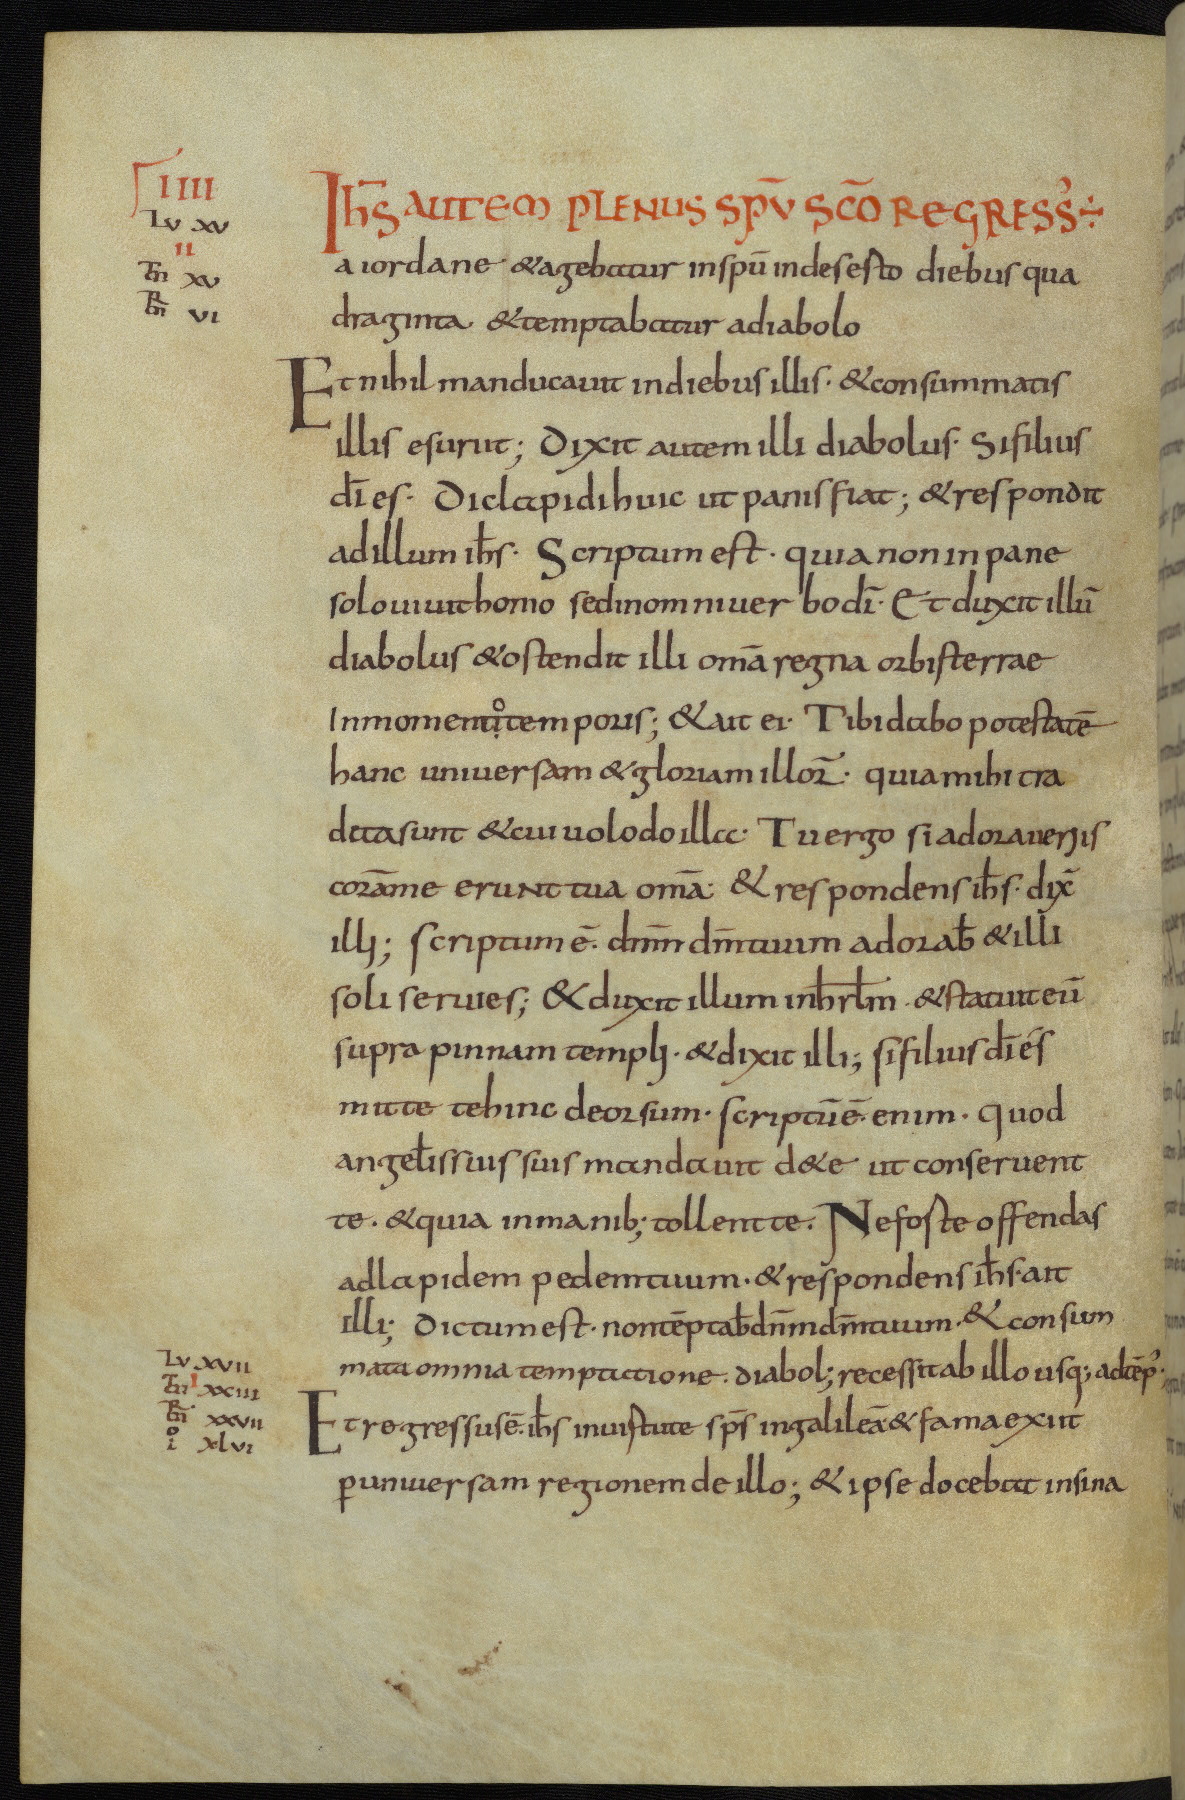 IIII
Lu xv
II
Mt xv
Mr vi
Ihs̄ AUTEM PLENUS SPŪ SCŌ REGRESS' ÷
a iordane &agebatur inspū indesesto diebus qua
draginta &temptabatur adiabolo
Et nihil manducauit indiebus illis· &consummatis
illis esuriit; Dixit autem illi diabolus· Sifilius
dī es· Diclapidi huic ut panis fiat; &respondit
adillum ihs̄· Scriptum est· quia non in pane
solo uiuit homo sedinomni uerbo dī· Et duxit illū
diabolus &ostendit illi omā regna orbis terrae
Inmomento temporis; &ait ei· Tibi dabo potestatē
hanc uniuersam &gloriam illoꝝ· quia mihi tra
dita sunt &cui uolo do illa· Tu ergo si adoraueris
corāme erunt tua omā· & respondens ihs̄· dix̄
illi; scriptum ē· dnm̄ dm̄ tuum adorab̄ &illi
soli seruies; & duxit illum inhrl̄m· &statuit eū
supra pinnam templi· &dixit illi; si filius dī és
mitte tehinc deorsum· scriptū ē· enim· quod
angel̄is suis mandauit d&e ut conseruent
te· &quia inmanib; tollent te· Ne foste offendas
adlapidem pedem tuum· &respondens ihs̄· ait
illi; Dictum est· non tēptab̄ dnm̄ dm̄ tuum· & consum
mata omnia temptatione· diabol; recessit ab illo usq; ad tēp'·
Lu xvii
Mt xxiii
Mr xxvii
io xlvi
Et regressus ē· ihs̄ inuirtute sps̄ ingalileā &fama exiit
ꝑ uniuersam regionem de illo; &ipse docebat insina